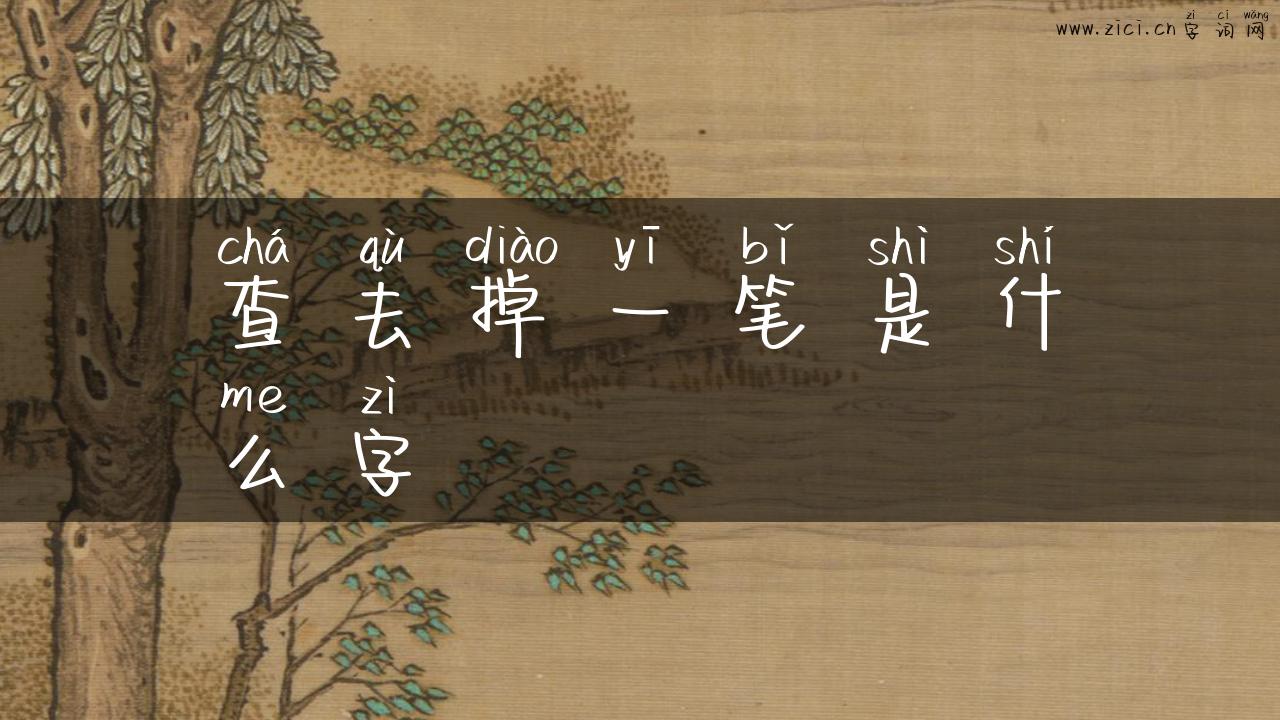 zì cí wǎng
www.zici.cn 字词网
chá qù diào yī bǐ shì shí
查去掉一笔是什
me zì
么字